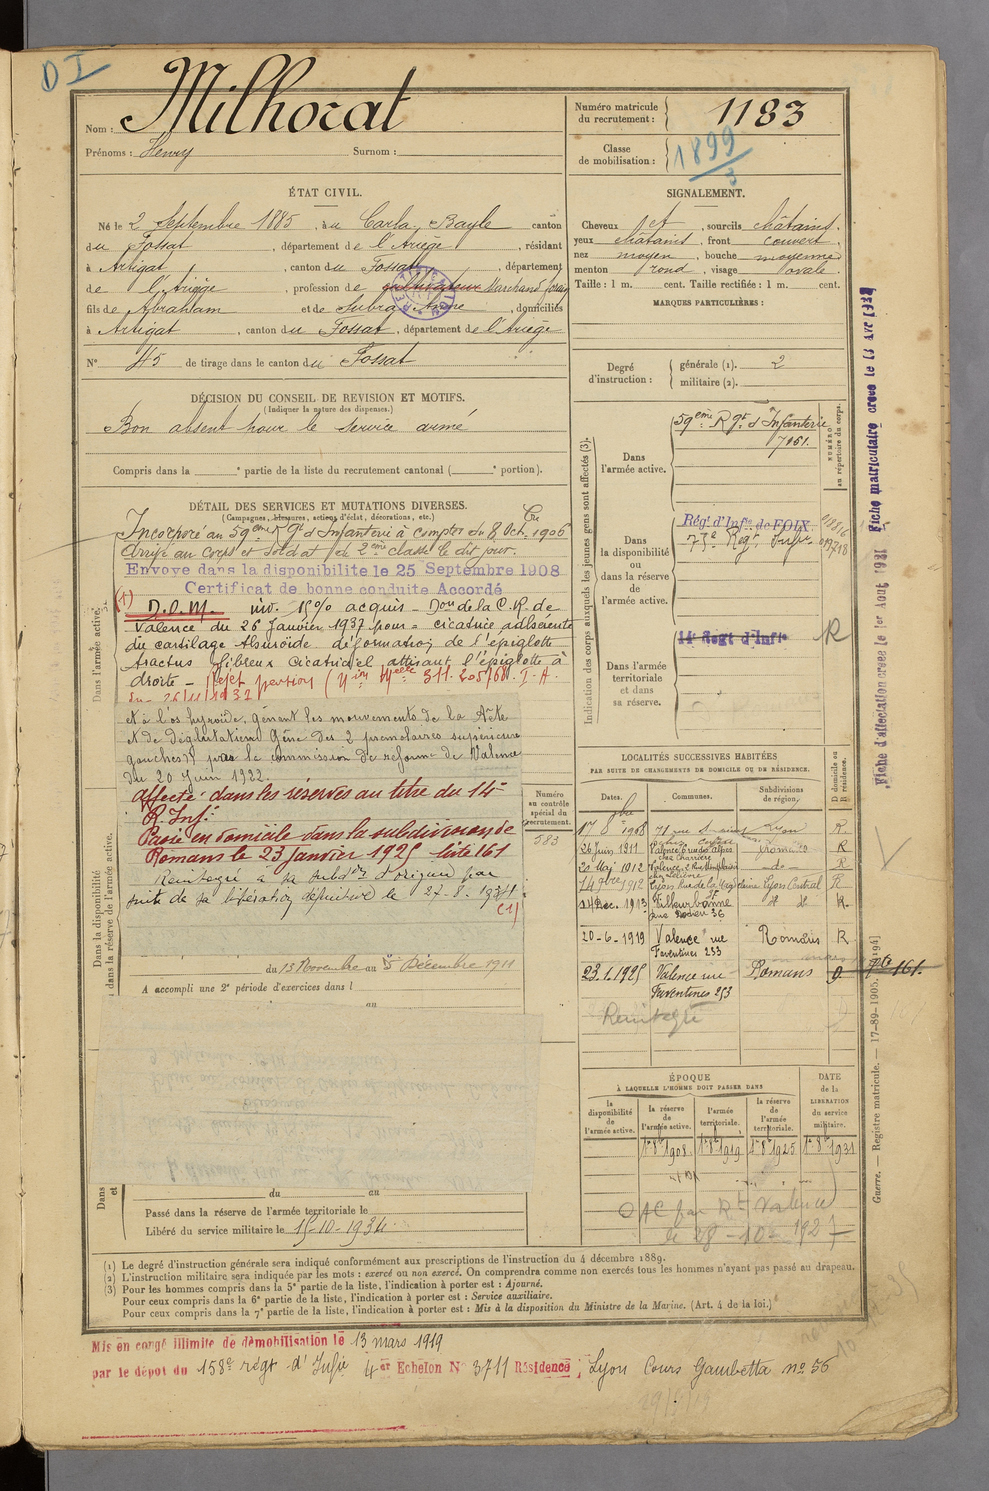 D I
Nom : Milhorat
Prénoms : Henry Surnom :
Numéro matricule du recrutement : 1183
Classe de mobilisation : 1899
3
ÉTAT CIVIL.
Né le 2 Septembre 1885, à u Carla-Bayle canton
du Fossat, département de l'Ariège, résidant
à Artigat, canton du Fossat, département
de l'Ariège, profession de cultivateur Marchand forain
fils de Abraham et de Subra Anne, domiciliés
à Artigat, canton du Fossat, département de l'Ariège
N° 45 de tirage dans le canton du Fossat
SIGNALEMENT.
Cheveux et, sourcils châtains.
yeux châtains, front couvert,
nez moyen, bouche moyenne
menton rond, visage ovale.
Taille : 1 m. cent. Taille rectifiée : 1 m. cent.
MARQUES PARTICULIÈRES :
Degré d'instruction :
générale (1). 2
militaire (2).
DÉCISION DU CONSEIL DE REVISION ET MOTIFS.
(Indiquer la nature des dispenses.)
Bon absent pour le service armé
Compris dans la e partie de la liste du recrutement cantonal ( e portion).
DÉTAIL DES SERVICES ET MUTATIONS DIVERSES.
(Campagnes, blessures, actions d'éclat, décorations, etc.)
Incorporé au 59ème Rgt d'Infanterie à compter du 8 Octbre 1906
Arrivé au corps et soldat de 2ème classe le dit jour.
Envoyé dans la disponibilité le 25 Septembre 1908
Certificat de bonne conduite Accordé
(1) D.O.M. inv. 15% acquis - Don de la C.R. de
Valence du 26 Janvier 1937 pour = cicatrice adhérente
du cartilage thyroïde déformation de l'épiglotte
tractus fibreux cicatriciel attirant l'épiglotte à
droite - Rejet pension
et à l'os hyoïde, gênant les mouvements de la tête
et de déglutition. Gêne des 2 prémolaires supérieures
gauches) par la commission de réforme de Valence
du 20 Juin 1922.
Affecté dans les réserves au titre du 14e
R. Inf.
Passé en domicile dans la subdivision de
Romans le 23 Janvier 1925 liste 161
Réintégré à sa subdon d'origine par
suite de sa libération définitive le 27-8-1934
(1)
du 13 Novembre au 5 Décembre 1911
A accompli une 2e période d'exercices dans l
au
du au
Passé dans la réserve de l'armée territoriale le
Libéré du service militaire le 15-10-1934
Dans l'armée active.
Dans la disponibilité
dans la réserve de l'armée active.
Dans
et
Numéro au contrôle spécial du recrutement.
583
Indication des corps auxquels les jeunes gens sont affectés (3).
NUMÉRO au répertoire du corps.
Dans l'armée active.
59ème Rgt d'Infanterie
7151.
Dans la disponibilité ou dans la réserve de l'armée active.
Régt d'Infie de FOIX
75e Régt Infie
Dans l'armée territoriale et dans sa réserve.
14e Regt d'Infie
R
LOCALITÉS SUCCESSIVES HABITÉES
PAR SUITE DE CHANGEMENTS DE DOMICILE OU DE RÉSIDENCE.
Dates. Communes. Subdivisions de région. D domicile ou R résidence.
17 8bre 1908 71 rue Lyon R.
26 Juin 1911 Valence Romans R
chez Charrière
20 Mai 1912 Valence -do- R
14 9bre 1912 Lyon Rue de la Lyon Central R
14 Dec. 1913 Villeurbanne R.
rue Rodier 36
20-6-1919 Valence rue Romans R
Faventines 253
23.1.1925 Valence rue Romans D liste 161.
Faventines 253
Réintégré
ÉPOQUE
À LAQUELLE L'HOMME DOIT PASSER DANS
la disponibilité de l'armée active.
la réserve de l'armée active.
l'armée territoriale.
la réserve de l'armée territoriale.
DATE de la LIBÉRATION du service militaire.
1er 8bre 1908 1er 8bre 1919 1er 8bre 1925 1er 8bre 1931
Valence
le 28-10-1927
(1) Le degré d'instruction générale sera indiqué conformément aux prescriptions de l'instruction du 4 décembre 1889.
(2) L'instruction militaire sera indiquée par les mots : exercé ou non exercé. On comprendra comme non exercés tous les hommes n'ayant pas passé au drapeau.
(3) Pour les hommes compris dans la 5e partie de la liste, l'indication à porter est : Ajourné.
Pour ceux compris dans la 6e partie de la liste, l'indication à porter est : Service auxiliaire.
Pour ceux compris dans la 7e partie de la liste, l'indication à porter est : Mis à la disposition du Ministre de la Marine. (Art. 4 de la loi.)
Mis en congé illimité de démobilisation le 13 mars 1919
par le dépôt du 158e régt d'Infie 4er Echelon N° 3711 Résidence ; Lyon Cours Gambetta no 56
Guerre. — Registre matricule. — 17-89-1905. [194]